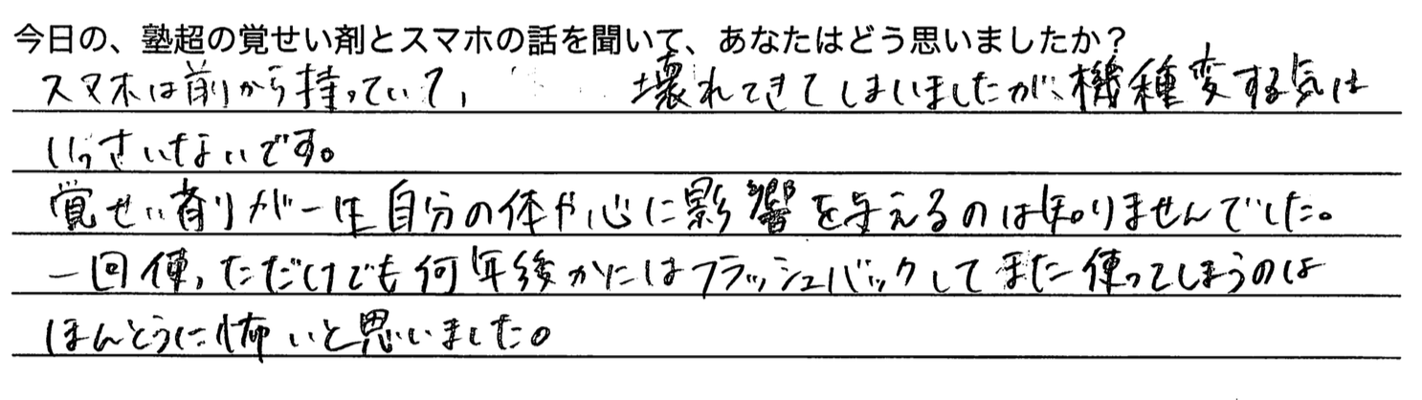 今日の、塾超の覚せい剤とスマホの話を聞いて、あなたはどう思いましたか？
スマホは前から持っていて、 壊れてきてしまいましたが、機種変する気は
いっさいないです。
覚せい剤が一生自分の体や心に影響を与えるのは知りませんでした。
一回使っただけでも何年後かにはフラッシュバックしてまた使ってしまうのは
ほんとうに怖いと思いました。